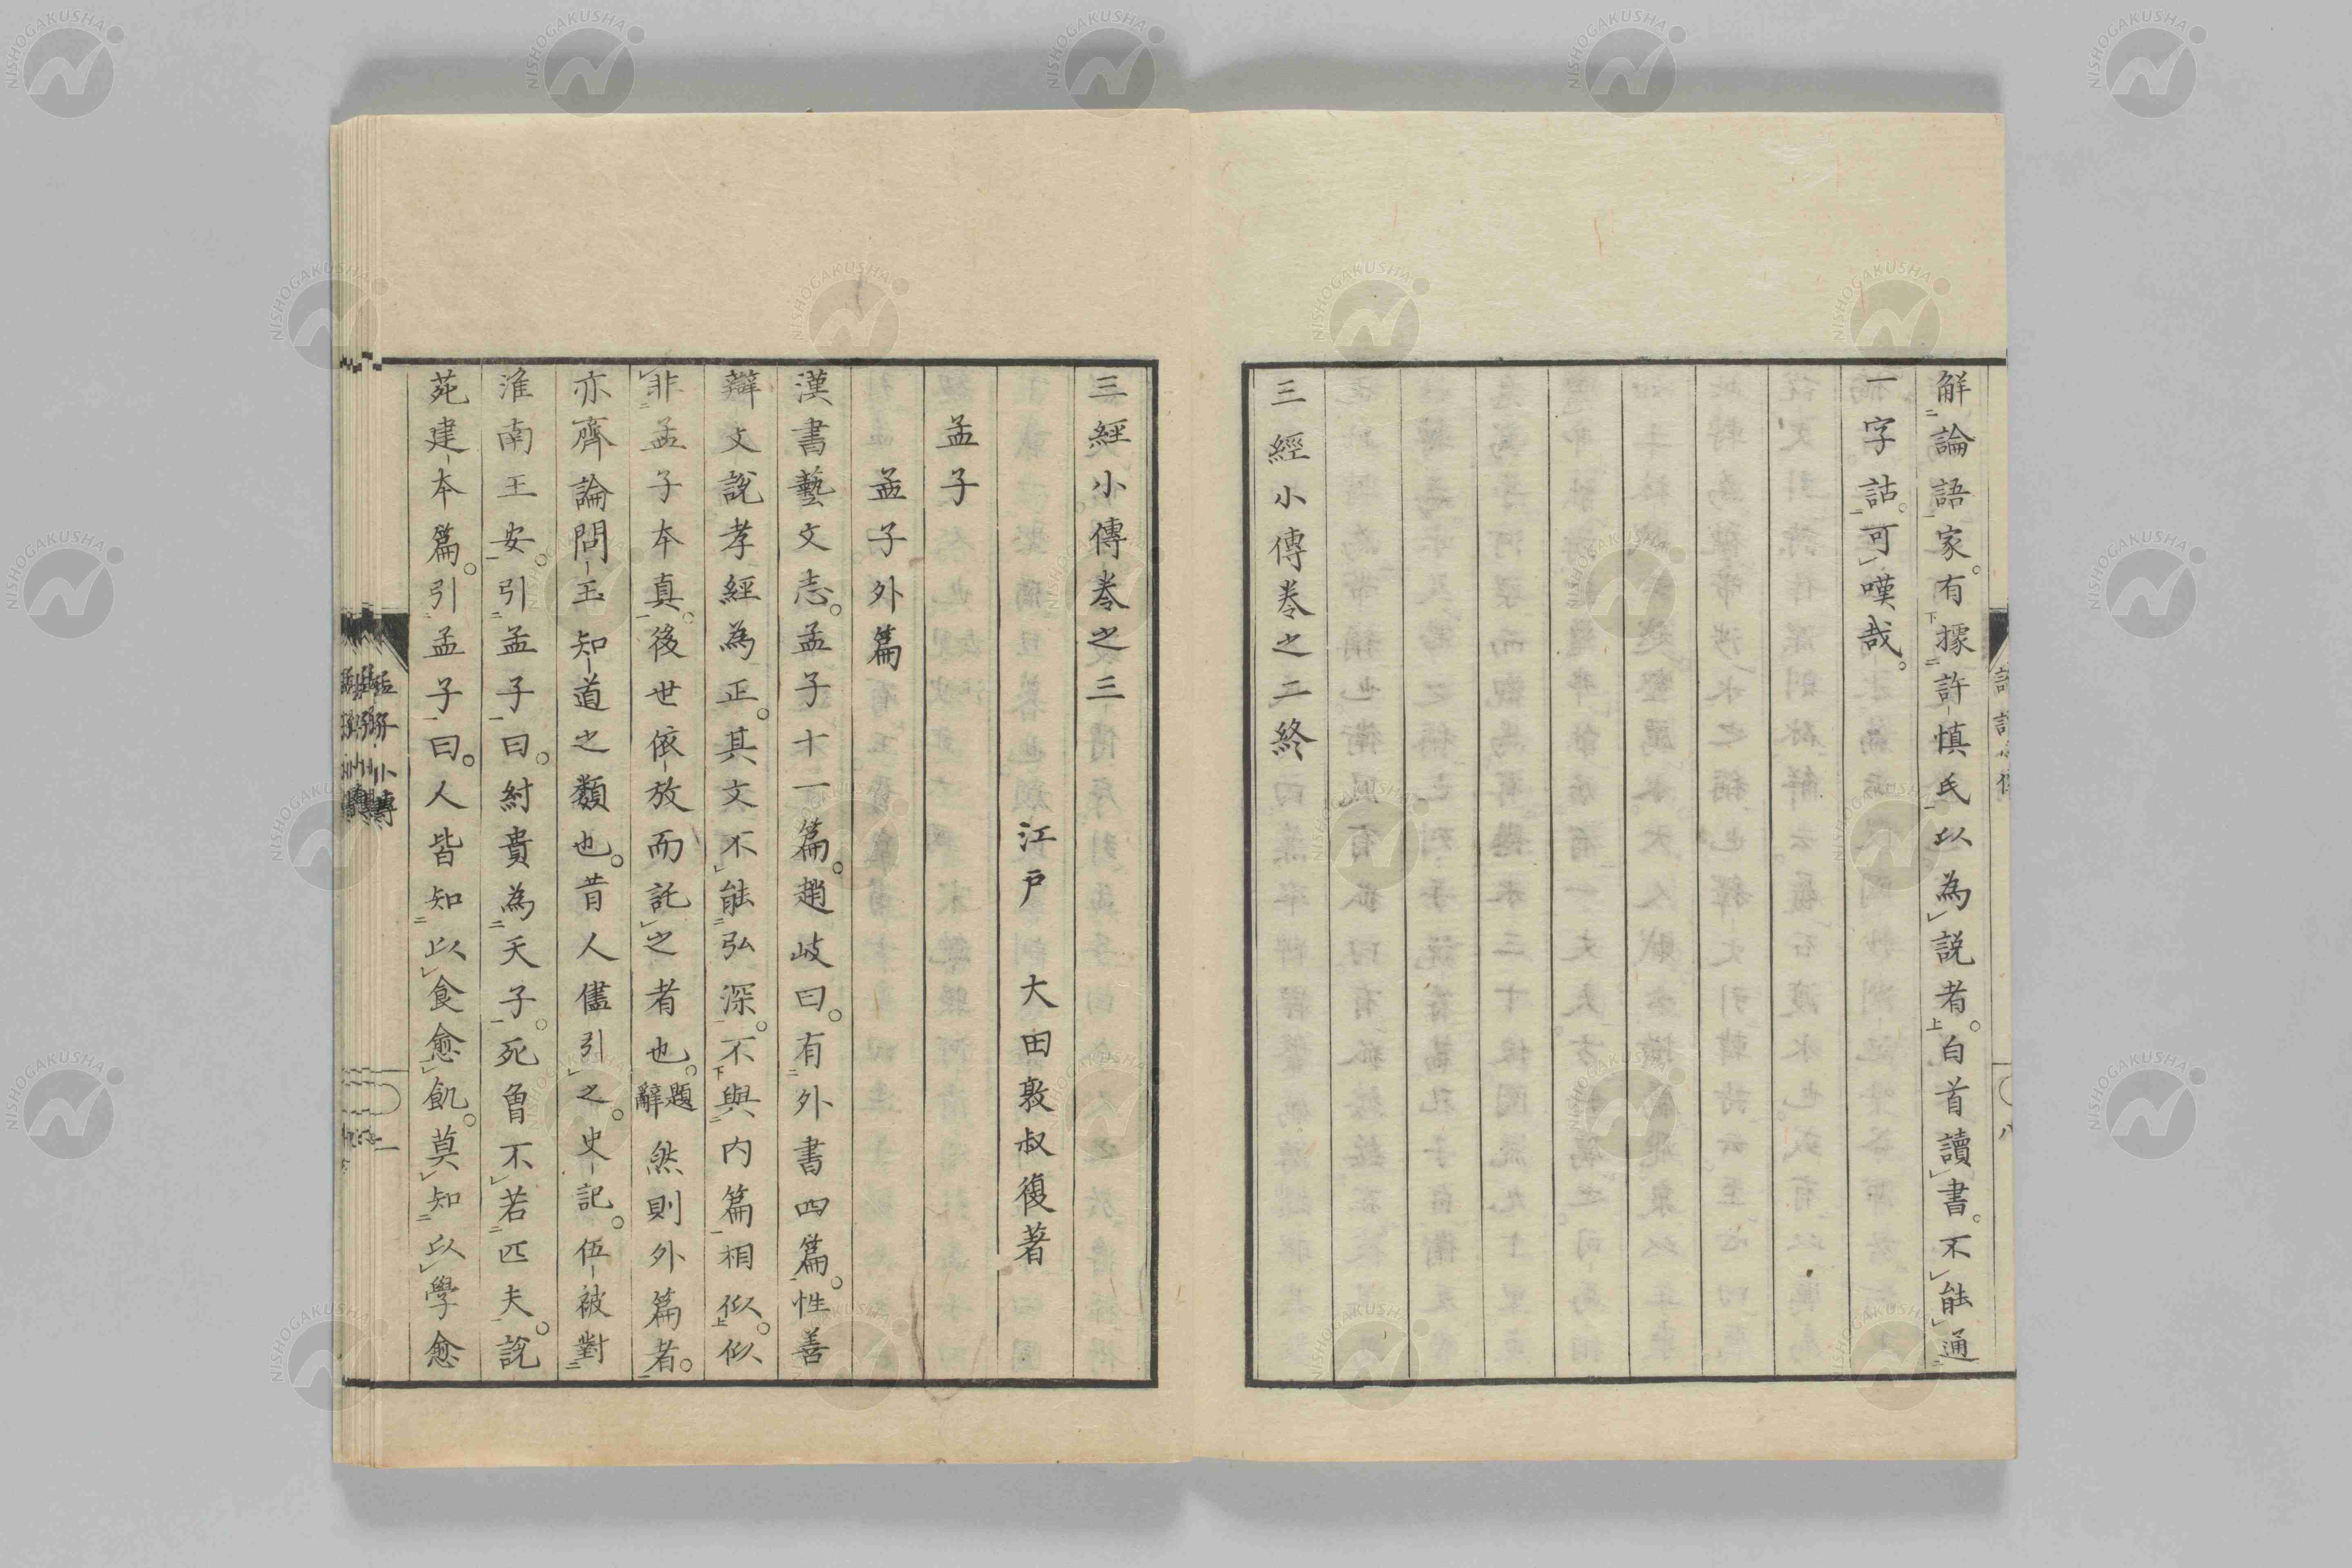 解論語家。有據許慎氏以為説者。白首讀書。不能通
一字詁。可嘆哉。
三經小傳卷之二終
三經小傳卷之三
江戸 大田敦叔復著
孟子
孟子外篇
漢書藝文志。孟子十一篇。趙岐曰。有外書四篇。性善
辯文説孝經為正。其文不能弘深。不與内篇相似。似
非孟子本真。後世依放而託之者也。題辭然則外篇者。
亦齊論問王知道之類也。昔人儘引之。史記。伍被對
淮南王安。引孟子曰。紂貴為天子。死曽不若匹夫。説
苑建本篇。引孟子曰。人皆知以食愈飢。莫知以學愈
孟子小傳
NISHOGAKUSHA